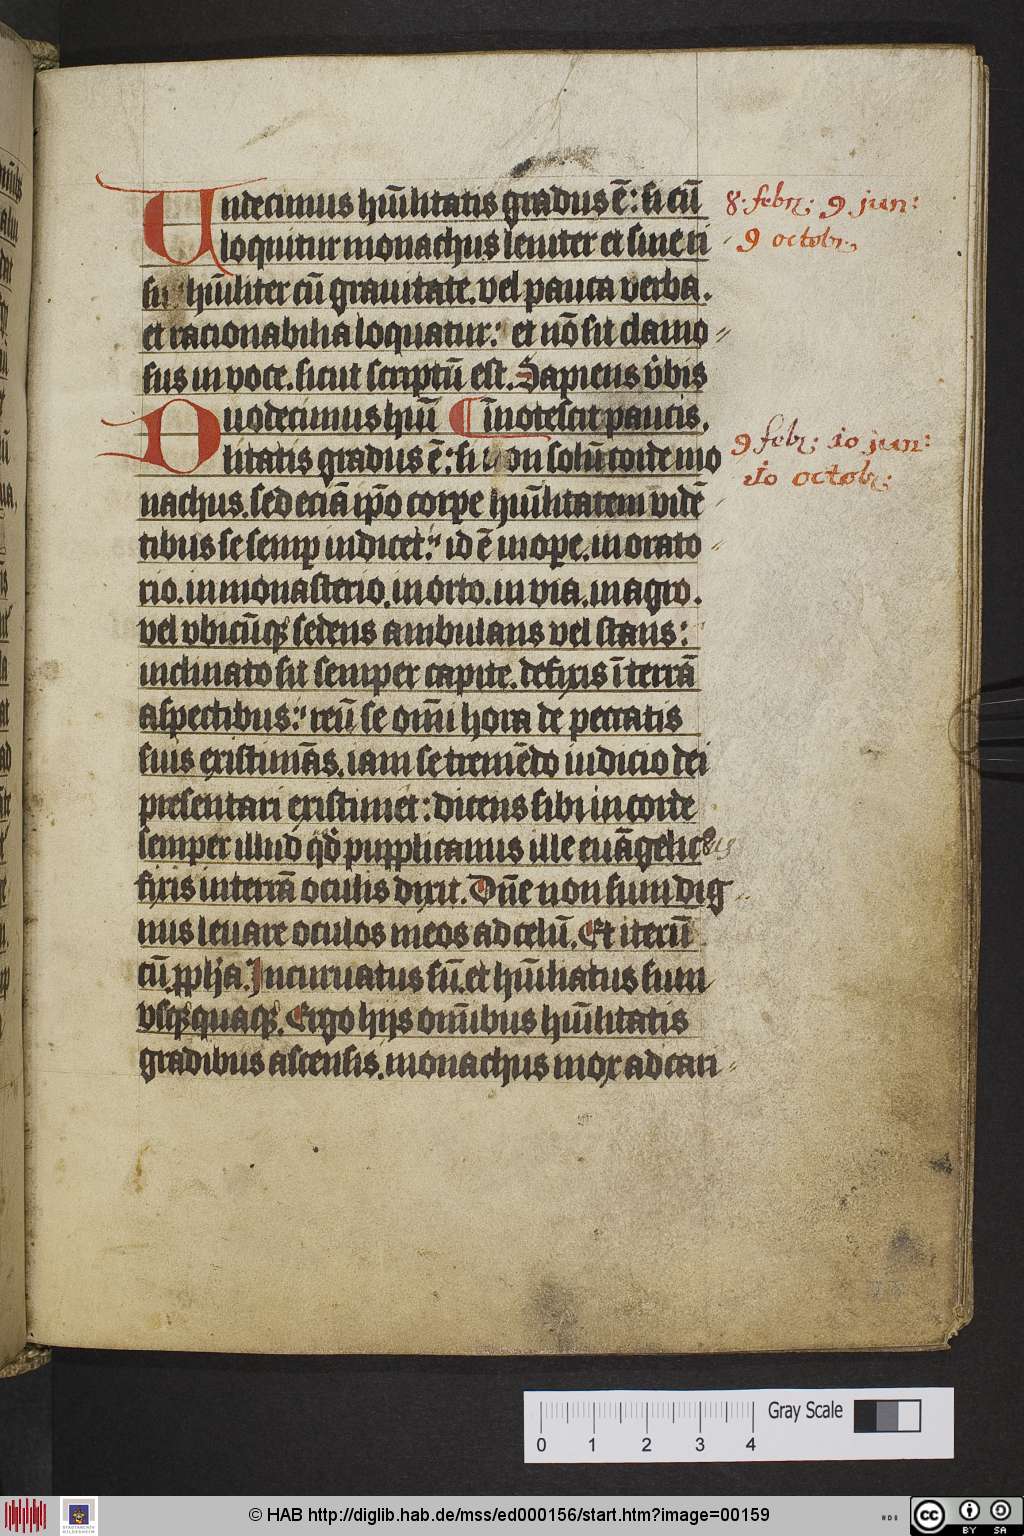 Undecimus hūilitatis gradus ē: si cū
loquitur monachus leniter et sine ri
su hūiliter cū grauitate. vel pauca verba.
et racionabilia loquatur: et nō sit clamo
sus in voce. sicut scriptū est. Sapiens v̓bis
Duodecimus hūi ¶ īnotescit paucis.
litatis gradus ē: si non solū corde mo
nachus. sed eciā ip̄o corꝑe hūilitatem vidē
tibus se semꝑ indicet: id ē in oꝑe. in orato
rio. in monasterio. in orto. in via. in agro.
vel vbicūqꝫ sedens ambulans vel stans:
inclinato sit semper capite. defixis ī terrā
aspectibus: reū se om̄i hora de peccatis
suis existimās. iam se tremēdo iudicio dei
presentari existimet: dicens sibi in corde
semper illud qd̓ puꝑplicanus ille euāgelicus
fixis in terrā oculis dixit. Dn̄e non sum dig
nus leuare oculos meos ad celū. Et iterū
cū ꝓph̓a. Incuruatus sū. et hūiliatus sum
vsqꝫquaqꝫ. Ergo hijs om̄ibus hūilitatis
gradibus ascensis. monachus mox ad cari
8. febr: 9 jun:
9 octobr:
9 febr: 10 jun:
10 octobr:
0 1 2 3 4
Gray Scale
© HAB http://diglib.hab.de/mss/ed000156/start.htm?image=00159
cc BY SA